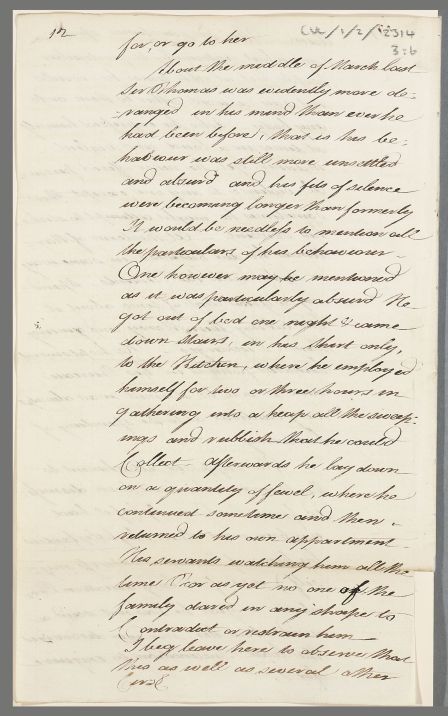 12
CUL/1/2/2314
3:6
for, or go to her
About the middle of March last
Sir Thomas was evidently more de-
-ranged in his mind than ever he
had been before, that is his be-
haviour was still more unsettled
and absurd and his fits of silence
were becoming longer than formerly
It would be needless to mention all
the particulars of his behaviour -
One however may be mentioned
as it was particularly absurd He
got out of bed one night & came
down stairs, in his shirt only,
to the Kitchen, where he employed
himself for two or three hours in
gathering into a heap all the sweep-
ings and rubbish that he could
Collect - afterwards he lay down
on a quantity of fewel, where he
continued sometime and then -
returned to his own appartment
His servants watching him all the
time For as yet no one of the
family dared in any shape to
Contradict or restrain him -
I beg leave here to observe that
this as well as several other